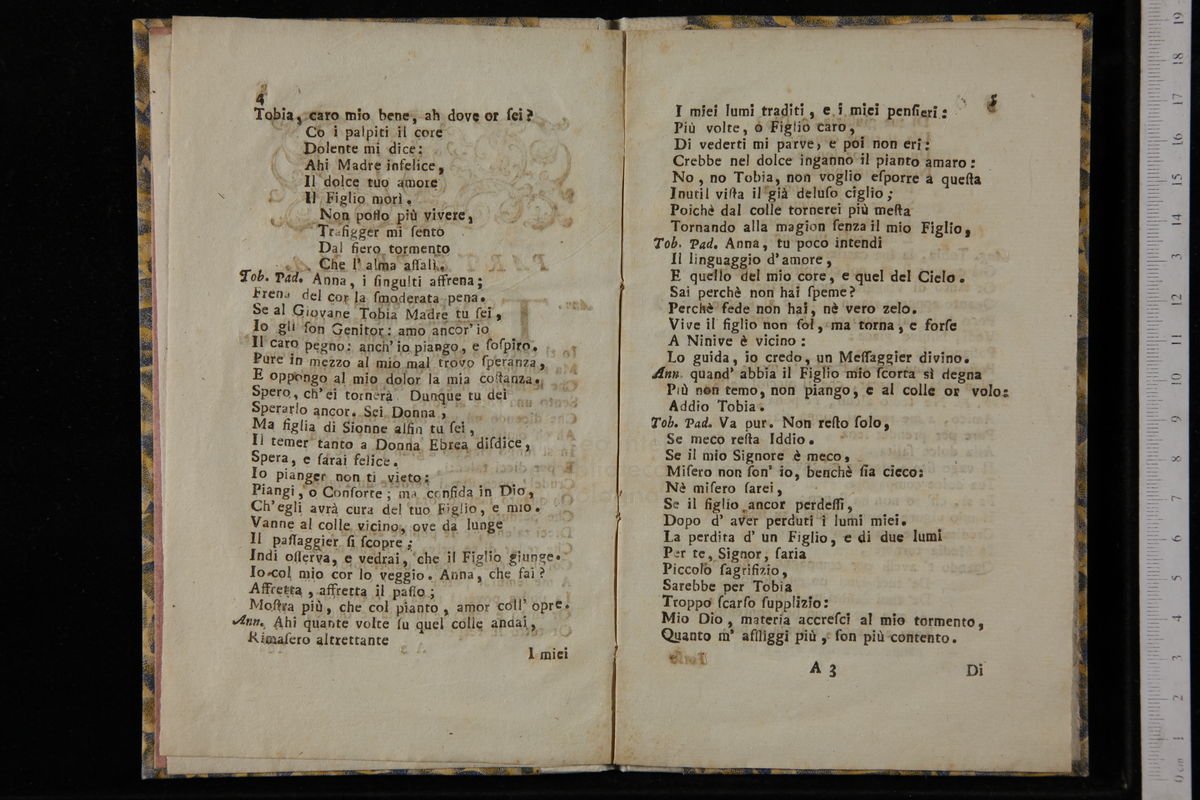 4
Tobia, caro mio bene, ah dove or ſei?
Co i palpiti il core
Dolente mi dice:
Ahi Madre infelice,
Il dolce tuo amore
Il Figlio morì.
Non poſſo più vivere,
Trafigger mi ſento
Dal fiero tormento
Che l'alma aſſalì.
Tob. Pad. Anna, i ſingulti affrena;
Frena del cor la ſmoderata pena.
Se al Giovane Tobia Madre tu ſei,
Io gli ſon Genitor: amo ancor'io
Il caro pegno: anch'io piango, e ſoſpiro.
Pure in mezzo al mio mal trovo ſperanza,
E oppongo al mio dolor la mia coſtanza.
Spero, ch'ei tornerà Dunque tu dei
Sperarlo ancor. Sei Donna,
Ma figlia di Sionne alfin tu ſei,
Il temer tanto a Donna Ebrea diſdice,
Spera, e ſarai felice.
Io pianger non ti vieto:
Piangi, o Conſorte; ma confida in Dio,
Ch'egli avrà cura del tuo Figlio, e mio.
Vanne al colle vicino, ove da lunge
Il paſſaggier ſi ſcopre;
Indi oſſerva, e vedrai, che il Figlio giunge.
Io col mio cor lo veggio. Anna, che fai?
Affretta, affretta il paſſo;
Moſtra più, che col pianto, amor coll'opre.
Ann. Ahi quante volte ſu quel colle andai,
Rimaſero altrettante
I miei
5
I miei lumi traditi, e i miei penſieri:
Più volte, o Figlio caro,
Di vederti mi parve, e poi non eri:
Crebbe nel dolce inganno il pianto amaro:
No, no Tobia, non voglio eſporre a queſta
Inutil viſta il già deluſo ciglio;
Poichè dal colle tornerei più meſta
Tornando alla magion ſenza il mio Figlio,
Tob. Pad. Anna, tu poco intendi
Il linguaggio d'amore,
E quello del mio core, e quel del Cielo.
Sai perchè non hai ſpeme?
Perchè fede non hai, nè vero zelo.
Vive il figlio non ſol, ma torna, e forſe
A Ninive è vicino:
Lo guida, io credo, un Meſſaggier divino.
Ann. quand' abbia il Figlio mio ſcorta sì degna
Più non temo, non piango, e al colle or volo:
Addio Tobia.
Tob. Pad. Va pur. Non reſto ſolo,
Se meco reſta Iddio.
Se il mio Signore è meco,
Miſero non ſon' io, benchè ſia cieco:
Nè miſero ſarei,
Se il figlio ancor perdeſſi,
Dopo d' aver perduti i lumi miei.
La perdita d' un Figlio, e di due lumi
Per te, Signor, ſaria
Piccolo ſagrifizio,
Sarebbe per Tobia
Troppo ſcarſo ſupplizio:
Mio Dio, materia accreſci al mio tormento,
Quanto m' affliggi più, ſon più contento.
A 3
Di